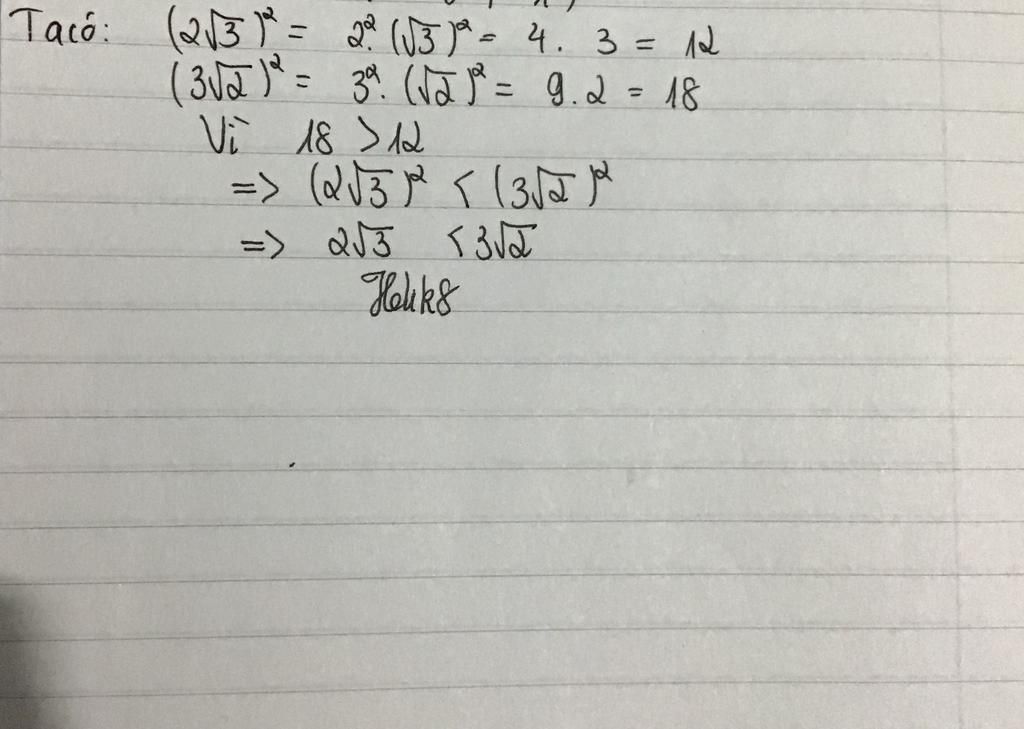 Ta có: (2√3)² = 2².(√3)² = 4. 3 = 12
(3√2)² = 3².(√2)² = 9.2 = 18
Vì 18 >12
=> (2√3)² < (3√2)²
=> 2√3 < 3√2